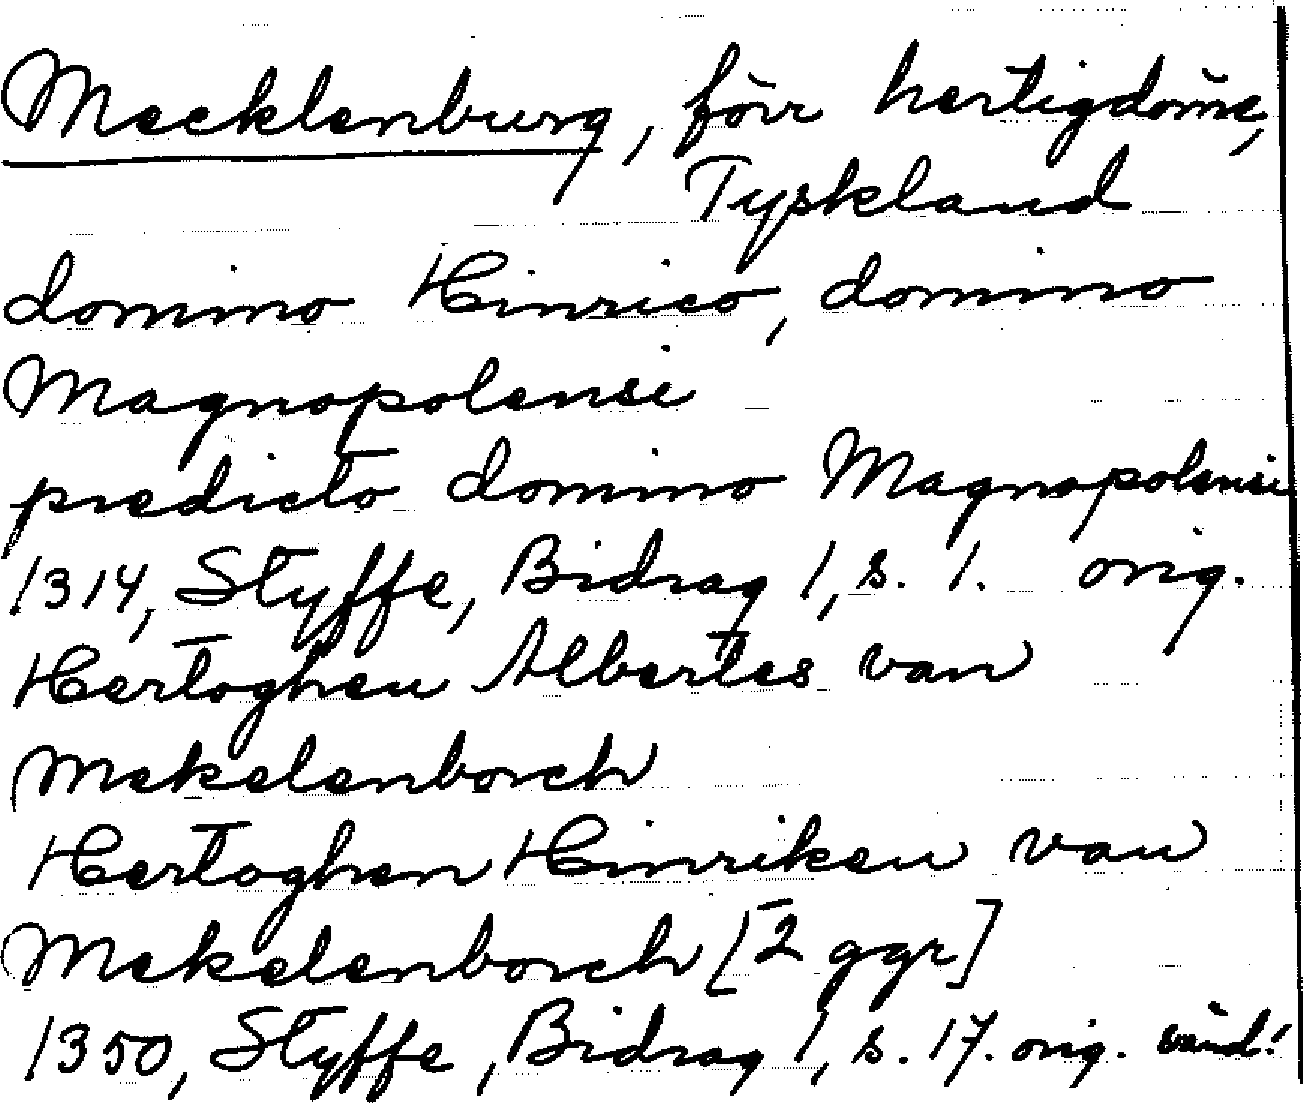 Mecklenburg, förr hertigdöme,
Tyskland
domino Hinrico, domino
Magnopolensi
predicto domino Magnopolensi
1314, Styffe, Bidrag 1, s. 1. orig.
Hertoghen Albertes van
Mekelenborch
Hertoghen Hinriken van
Mekelenborch [2 ggr]
1350, Styffe, Bidrag 1, s. 17. orig. vänd!